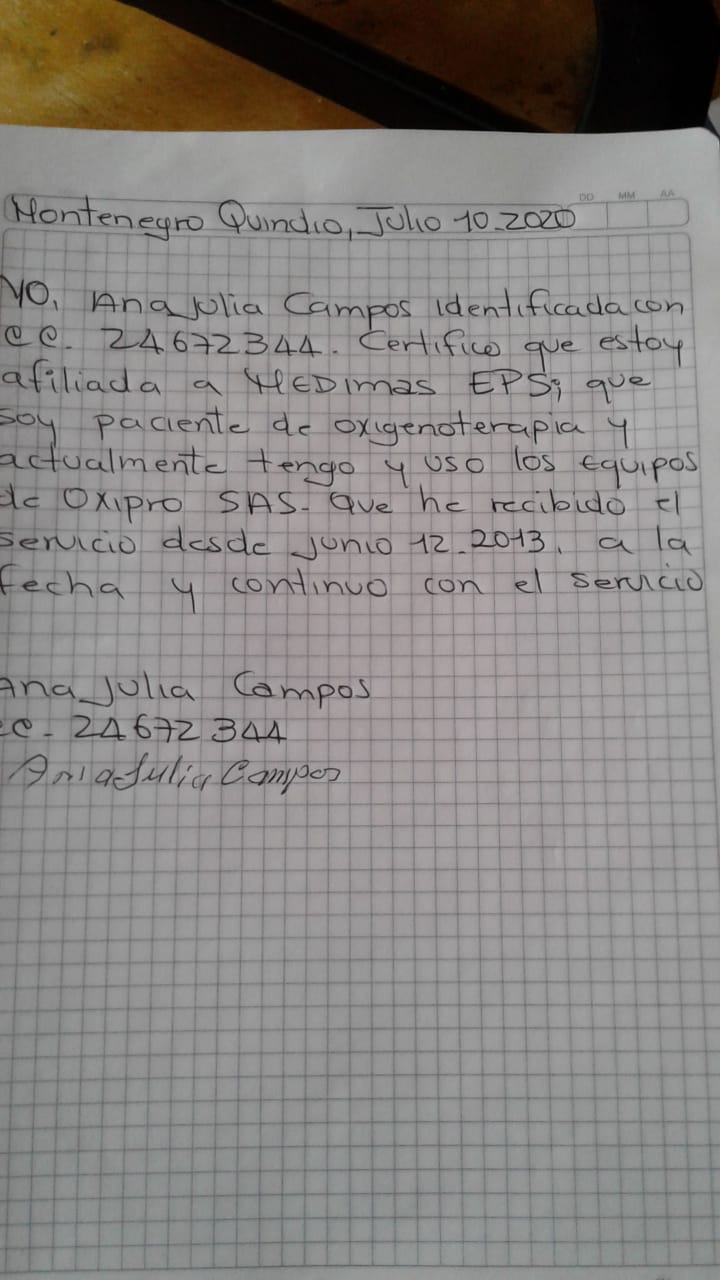 DD MM AA
Montenegro Quindio, Julio 10.2020
YO, Ana Julia Campos identificada con
CC. 24672344. Certifico que estoy
afiliada a MEDIMAS EPS; que
soy paciente de oxigenoterapia y
actualmente tengo y uso los equipos
de OXIPRO SAS. Que he recibido el
servicio desde junio 12.2013. a la
fecha y continuo con el servicio
Ana Julia Campos
CC. 24672344
Ana Julia Campos